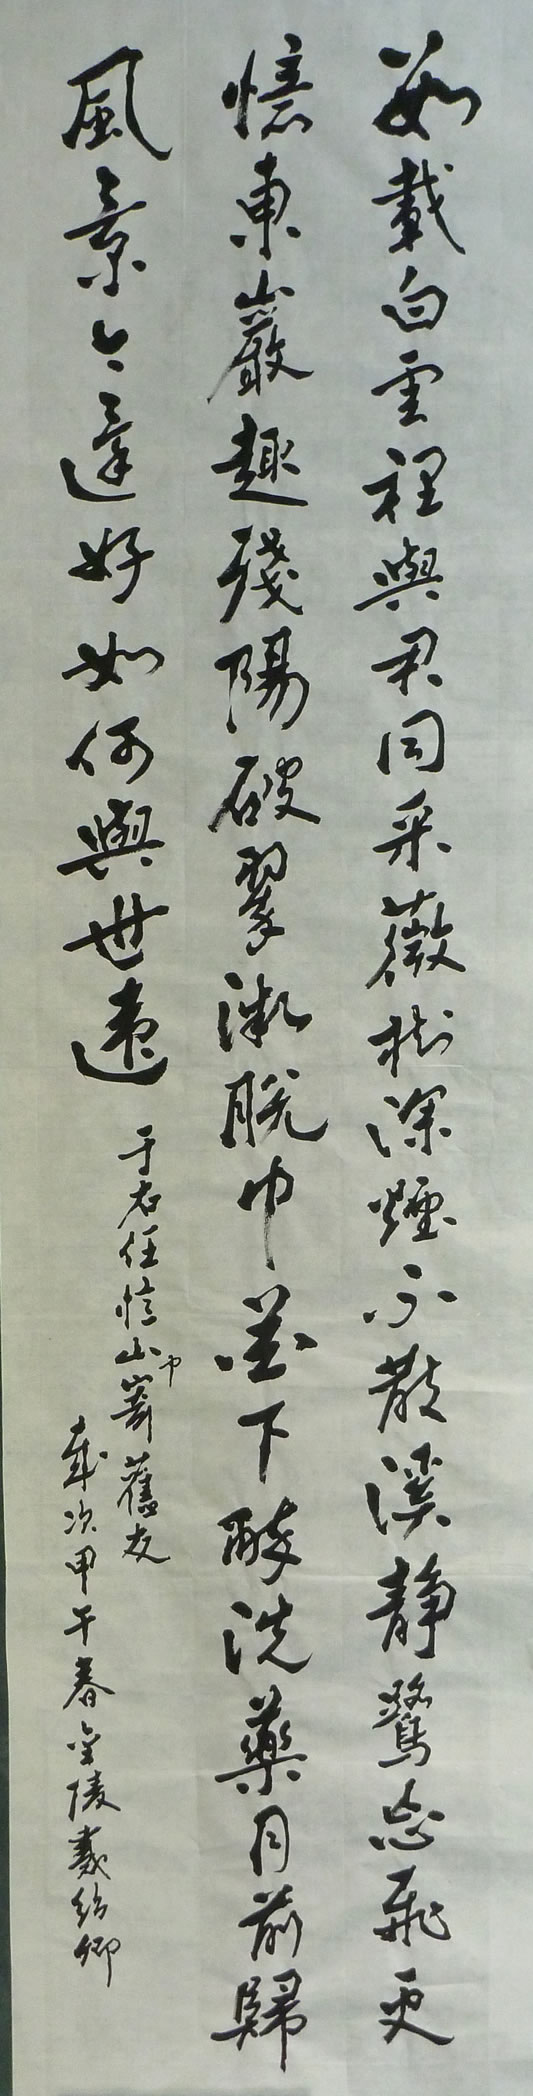 數載白雲裡與君同采薇樹深煙不散溪靜鷺忘飛更
憶東巖趣殘陽破翠微脫巾花下醉洗藥月前歸
風景今還好如何與世違
于右任憶山中寄舊友
歲次甲午春金陵紹卿